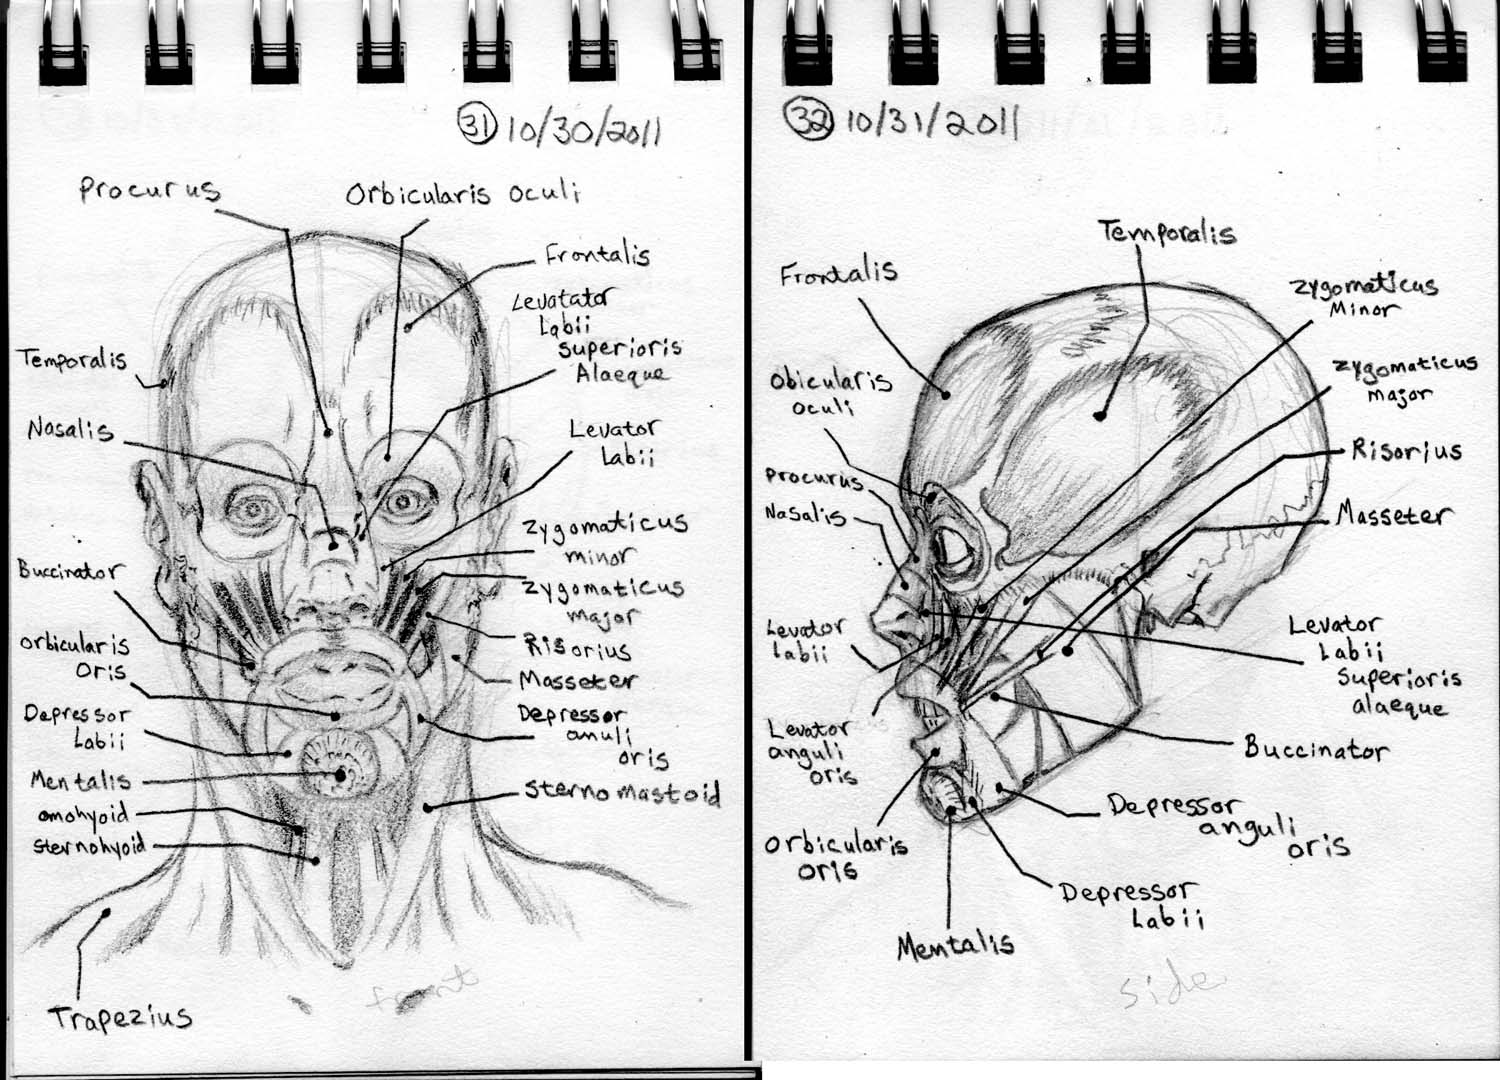 31 10/30/2011
Procurus
Orbicularis oculi
Frontalis
Levatator
Labii
superioris
Alaeque
Temporalis
Nasalis
Levator
Labii
Zygomaticus
minor
Buccinator
Zygomaticus
major
Orbicularis
Oris
Risorius
Masseter
Depressor
Labii
Depressor
anuli
oris
Mentalis
Sternomastoid
omohyoid
sternohyoid
Trapezius
front
32 10/31/2011
Temporalis
Frontalis
Zygomaticus
Minor
Zygomaticus
major
Obicularis
oculi
Risorius
Procurus
Nasalis
Masseter
Levator
Labii
Levator
Labii
Superioris
alaeque
Levator
anguli
oris
Buccinator
Depressor
anguli
oris
Orbicularis
oris
Depressor
Labii
Mentalis
side